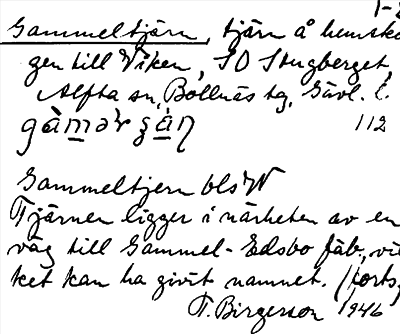 1-2
Gammeltjärn, tjärn å hemsko
gen till Viken, SO Stugberget,
Alfta sn, Bollnäs tg, Gävl. l.
112
Gammeltjern bls W
Tjärnen ligger i närheten av en
väg till Gammel-Edsbo fäb., vil
ket kan ha givit namnet. (forts.
T. Birgersson 1946